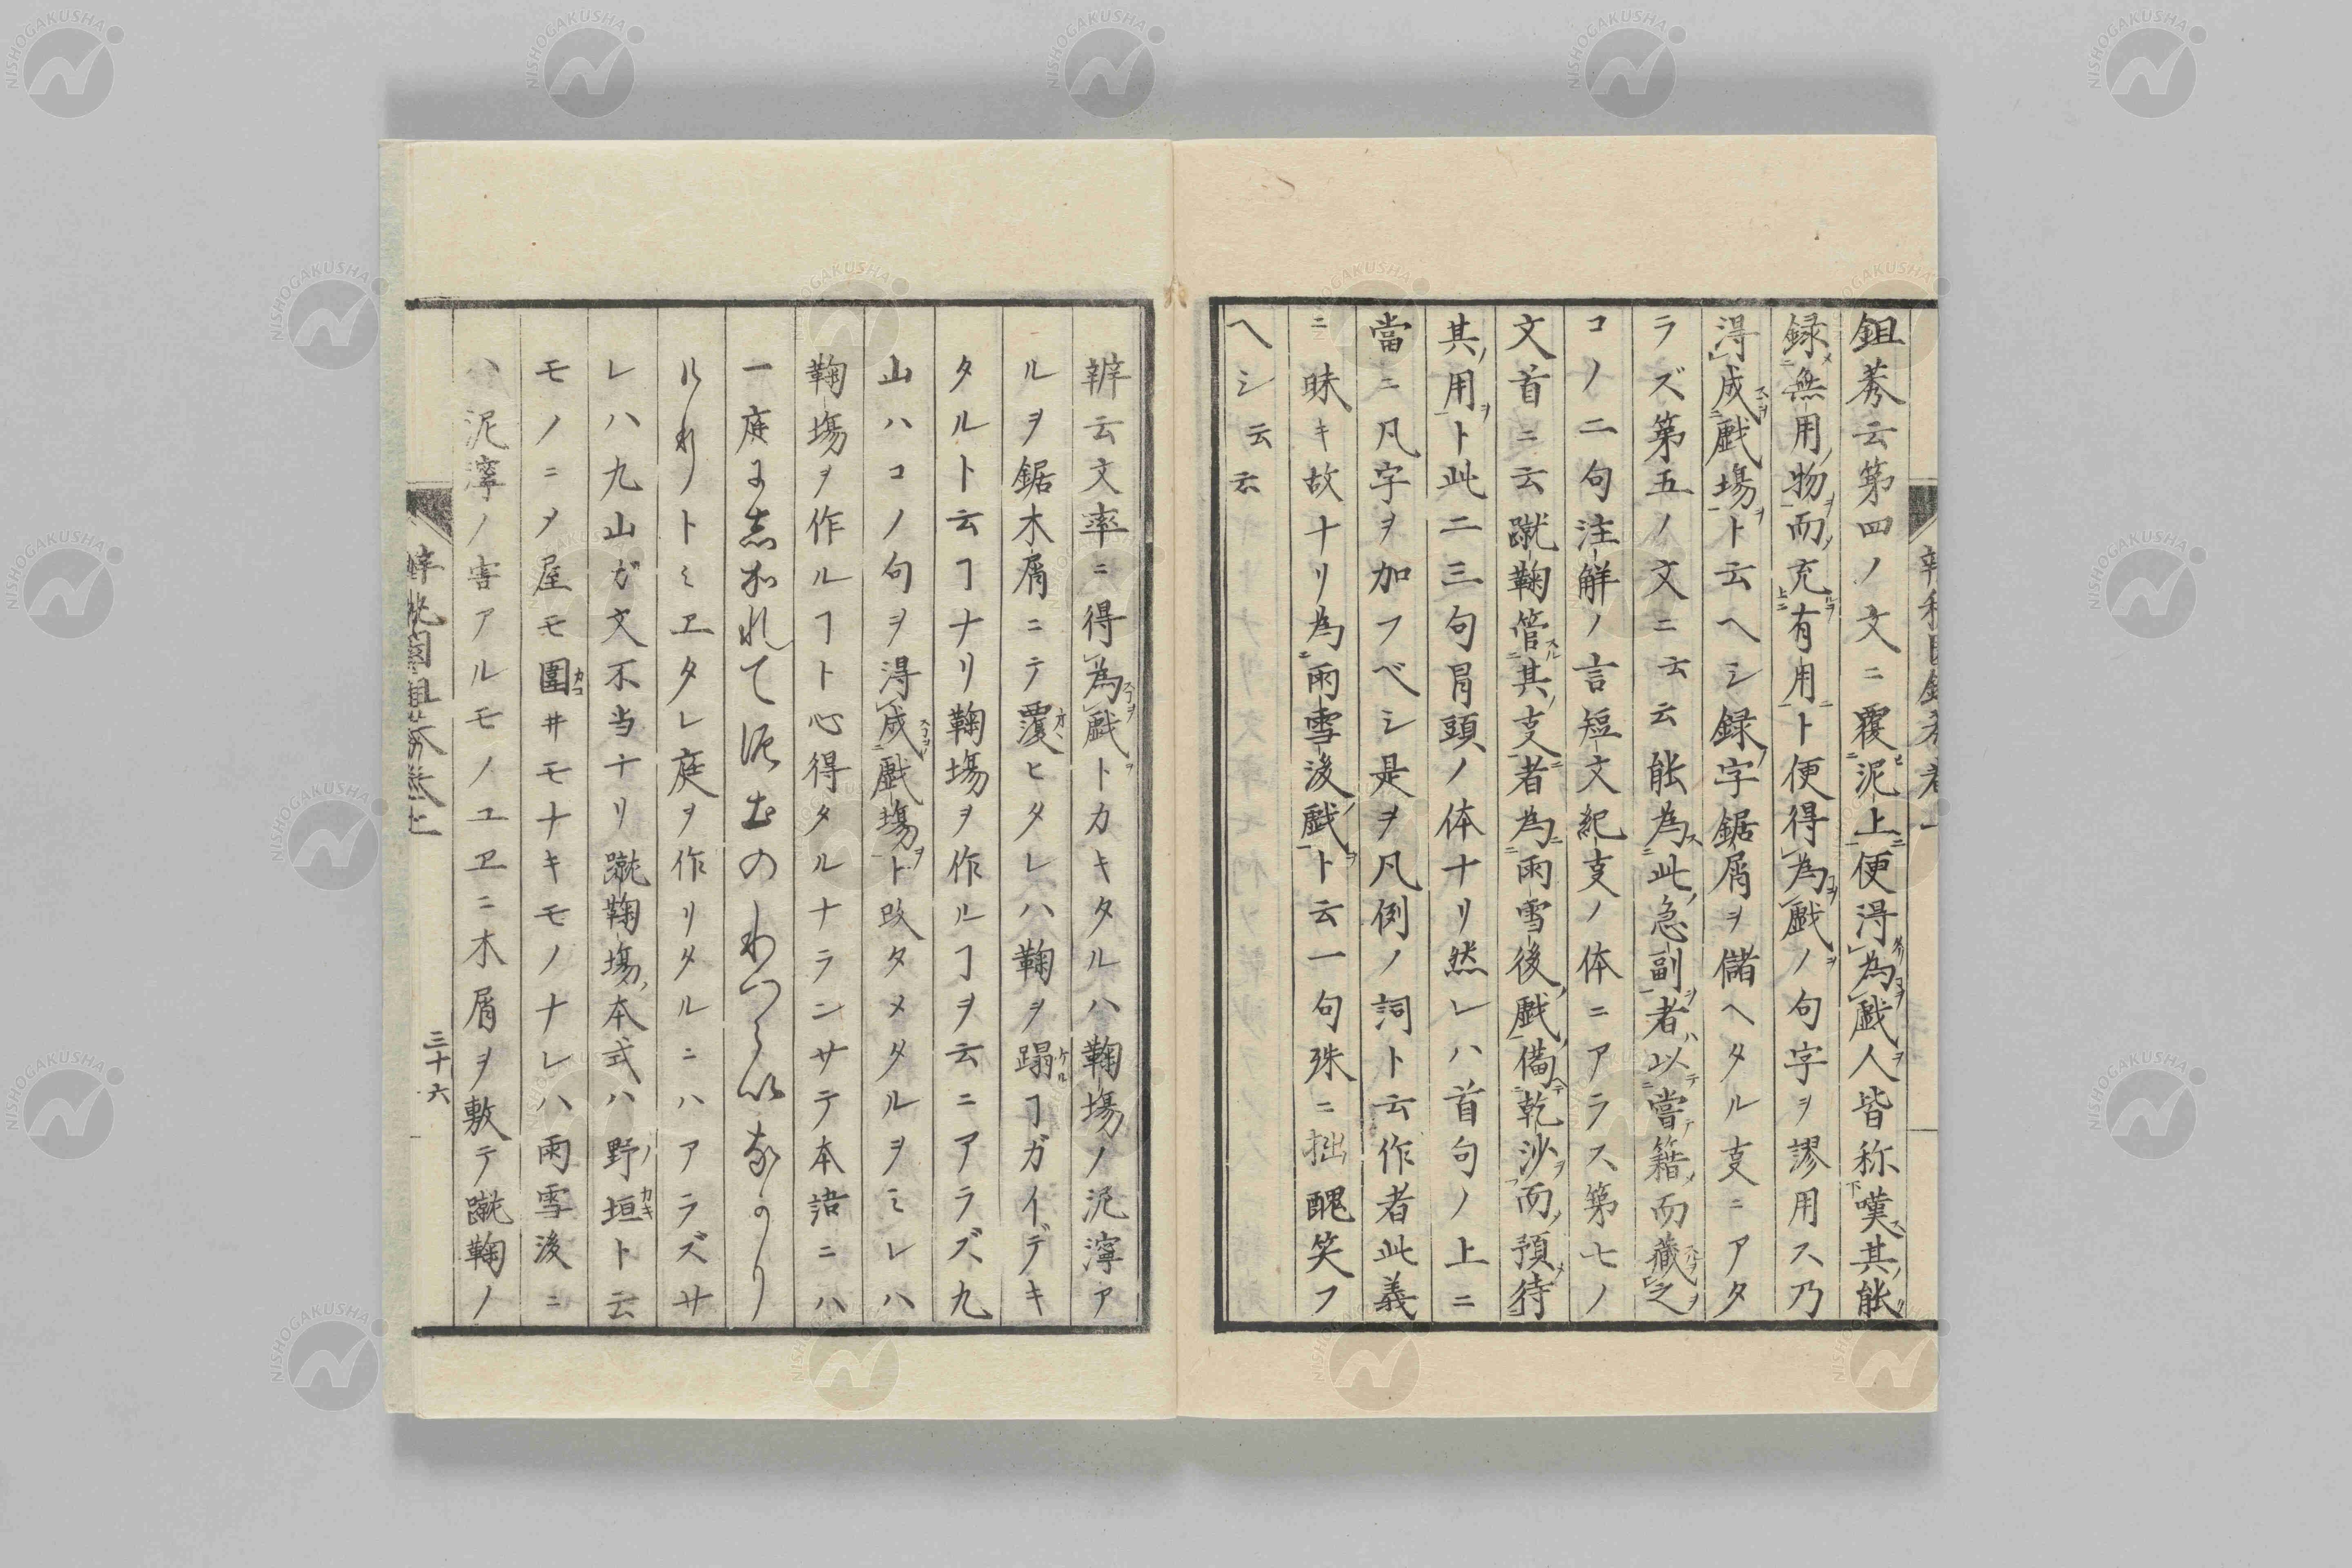 鉏莠云第四ノ文ニ覆泥上便得為戯人皆称嘆其能
録無用物而充有用ト便得為戯ノ句字ヲ謬用ス乃
得成戯場ト云ヘシ録字鋸屑ヲ儲ヘタル支ニアタ
ラズ第五ノ文ニ云云能為此急副者以嘗籍而蔵之
コノ二句注解ノ言短文紀支ノ体ニアラス第七ノ
文首ニ云蹴鞠管其支者為雨雪後戯備乾沙而預待
其用ト此二三句冐頭ノ体ナリ然レハ首句ノ上ニ
當ニ凡字ヲ加フベシ是ヲ凡例ノ詞ト云作者此義
ニ昧キ故ナリ為雨雪後戯ト云一句殊ニ拙醜笑フ
ヘシ云云
辨云文率ニ得為戯トカキタルハ鞠場ノ泥濘ア
ルヲ鋸木屑ニテ覆ヒタレハ鞠ヲ蹋ヿガイデキ
タルト云ヿナリ鞠場ヲ作ルヿヲ云ニアラズ九
山ハコノ句ヲ得成戯場ト改タメタルヲミレハ
鞠場ヲ作ルヿト心得タルナランサテ本語ニハ
一庭にしかれて泥土のわつらいなかり
けりトミヱタレ庭ヲ作リタルニハアラズサ
レハ九山ガ文不当ナリ蹴鞠場本式ハ野垣ト云
モノニメ屋モ圍ヰモナキモノナレハ雨雪後ニ
ハ泥濘ノ害アルモノユヱニ木屑ヲ敷テ蹴鞠ノ
三十六
NISHOGAKUSHA